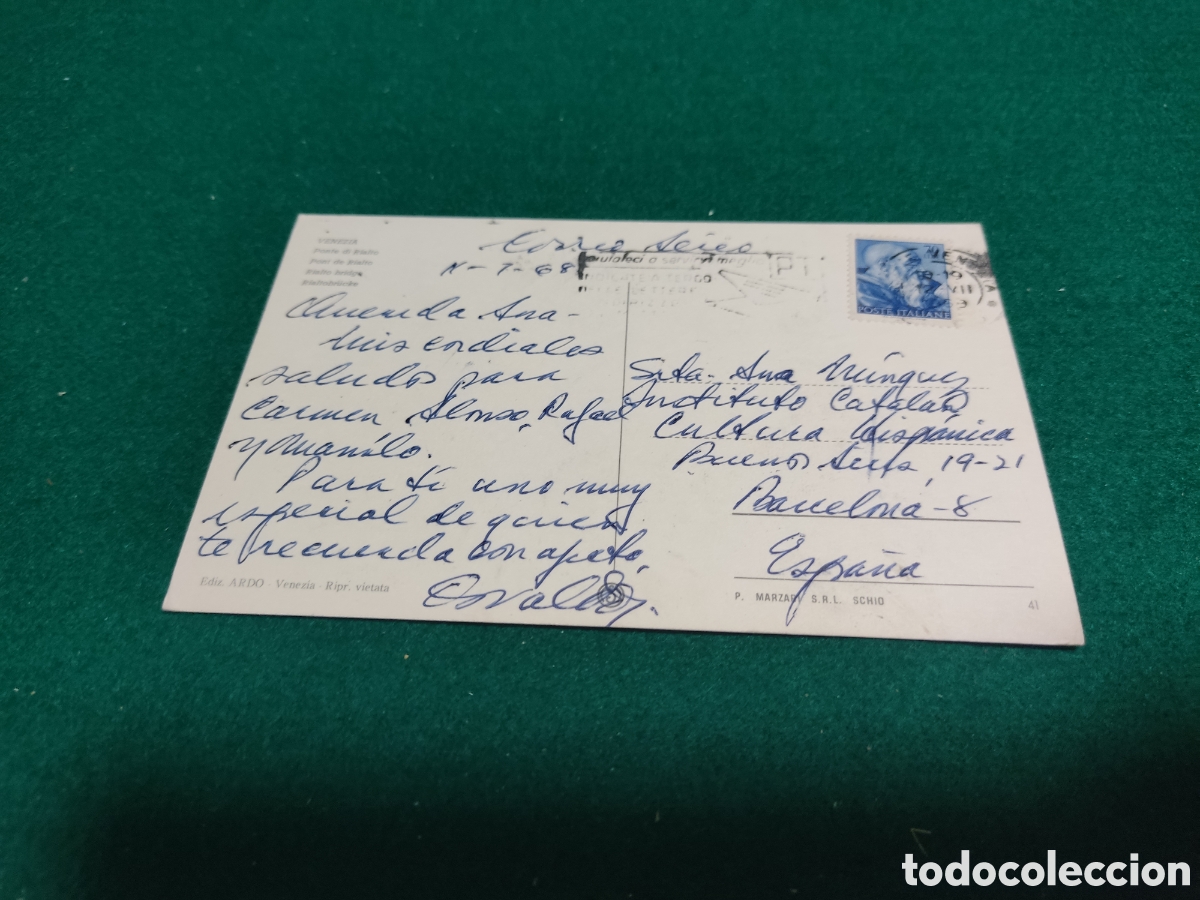 VENEZIA
Ponte di Rialto
Pont de Rialto
Rialto bridge
Rialtobrücke
Correo Aéreo
-7-68
aiutateci a servirvi meglio
VENEZIA
POSTE ITALIANE
Querida Ana-
Mis cordiales
saludos para
Carmen, Alonso, Rafael
y Manolo.
Para ti uno muy
especial de quien
te recuerda con afecto,
Srta. Ana Mínguez
Instituto Catalán
Cultura Hispánica
Buenos Aires, 19-21
Barcelona-8
España
Ediz. ARDO - Venezia - Ripr. vietata
P. MARZARI S.R.L. SCHIO
41
todocoleccion